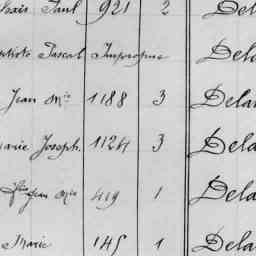 Paul 921 2 Del
Pascal Impropme
Jean Mie 1188 3 Dela
Marie Joseph. 1124 3 Dela
Jean Mie 419 1 Dela
Marie 145 1 Dela